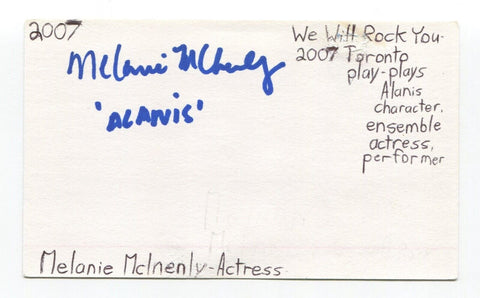 2007
Melanie McInenly
'ALANIS'
We Will Rock You-
2007 Toronto
play-plays
Alanis
character.
ensemble
actress,
performer
Melanie McInenly-Actress